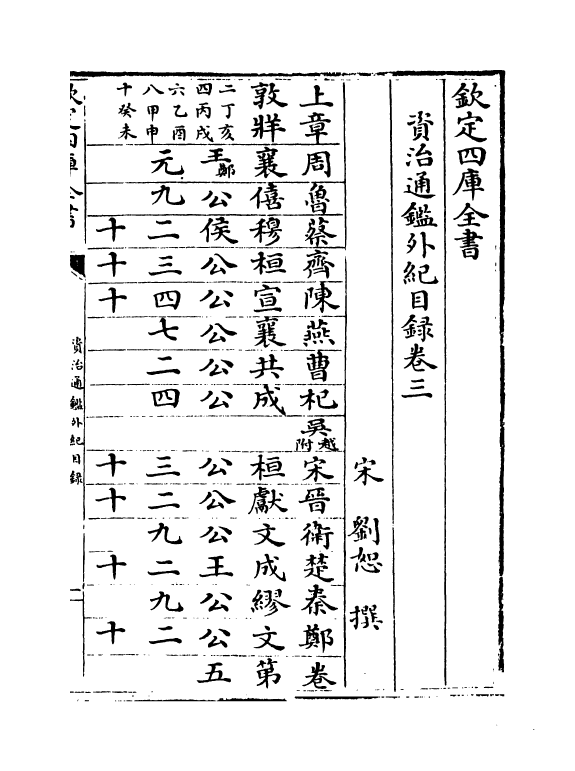 欽定四庫全書
資治通鑑外紀目録卷三
宋 劉恕 撰
上章周魯蔡齊陳燕曹杞吳越附宋晉衛楚秦鄭卷
敦牂襄僖穆桓宣襄共成桓獻文成繆文第
二丁亥
四丙戌
六乙酉
八甲申
十癸未
王鄭公侯公公公公公公公公王公公五
元九二三四七二四三二九二九二
十十十十十十十
資治通鑑外紀目録
一